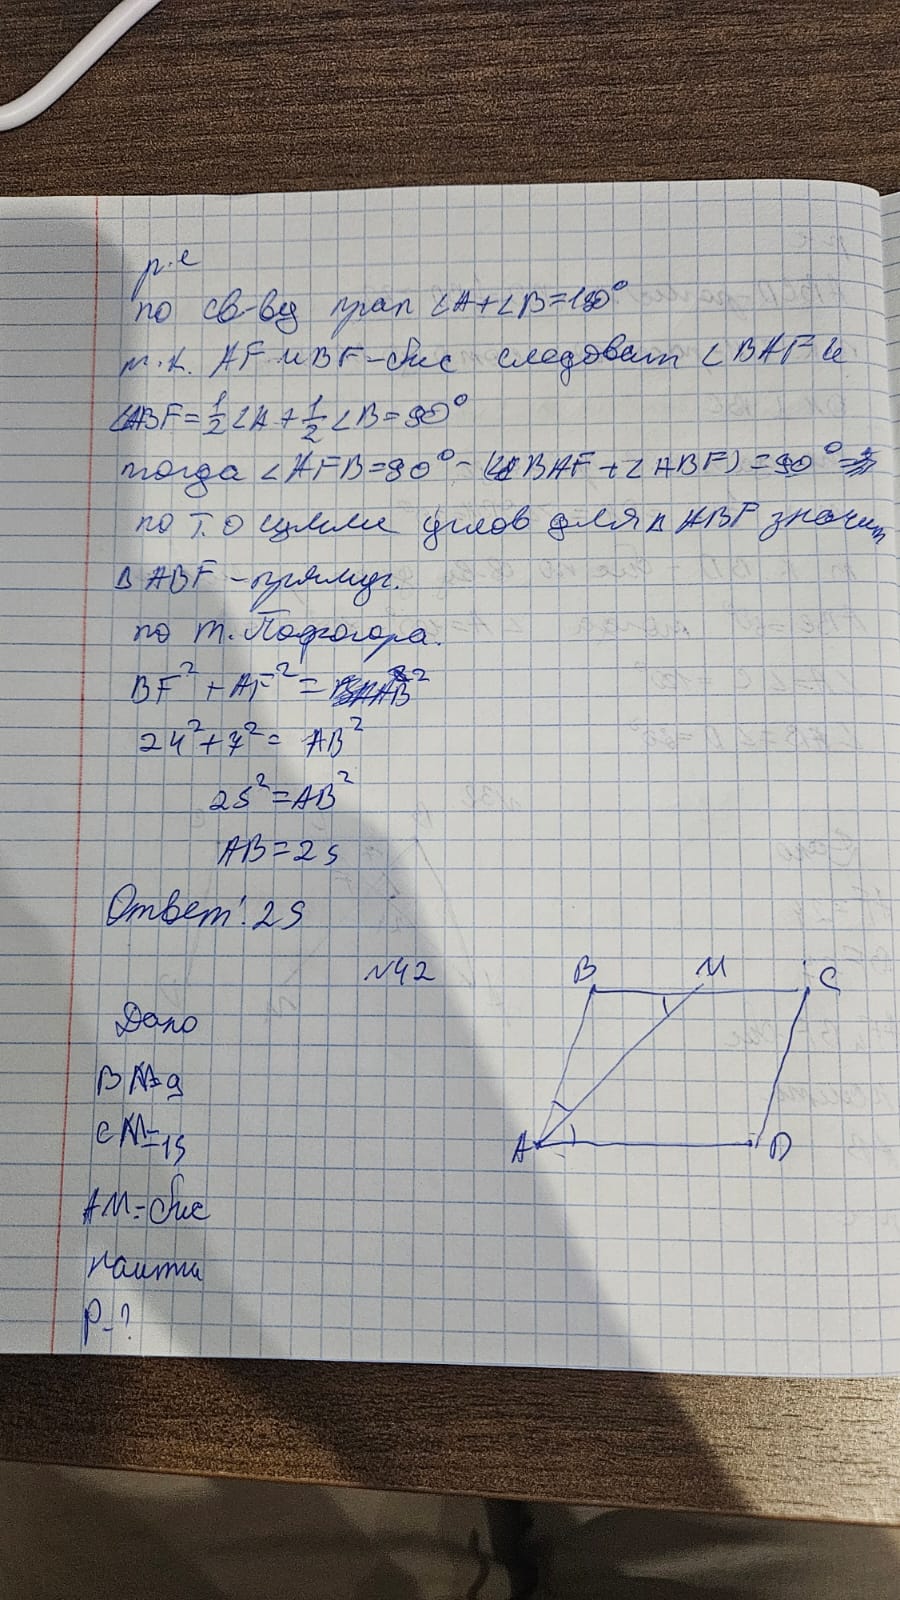 р.е
по св-ву трап ∠A+∠B=180°
т.к. AF и BF-бис следоват ∠BAF и
∠ABF=1/2∠A+1/2∠B=90°
тогда ∠AFB=90°-(∠BAF+∠ABF)=90°
по т. о сумме углов для △ABF значит
△ABF-прямоуг.
по т. Пифогора.
BF²+AF²=AB²
24²+7²=AB²
25²=AB²
AB=25
Ответ: 25
№42
B M C
Дано
BM=9
CM=15
A D
AM=бис
Найти
P-?